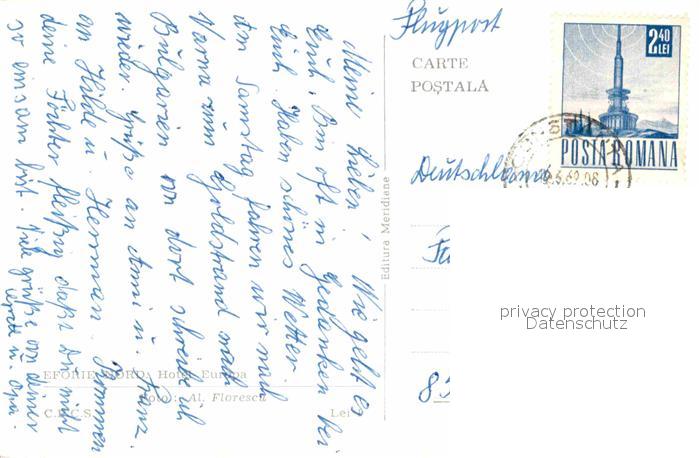 Flugpost
CARTE
POȘTALĂ
2,40
LEI
POSTA ROMANA
Deutschland
privacy protection
Datenschutz
Editura Meridiane
Meine Lieben! Wie geht es
Euch. Bin oft in Gedanken bei
Euch. Haben schönes Wetter.
Am Samstag fahren wir nach
Varna zum Goldstrand nach
Bulgarien von dort schreibe ich
wieder. Grüße an Anni u. Franz.
an Hilde u. Herrman.
deine Töchter fleißig daßt Du nicht
so einsam bist. Viele grüße von deiner
u. Opa.
EFORIE NORD: Hotel Europa
Foto: Al. Florescu
C.P.C.S.
Lei